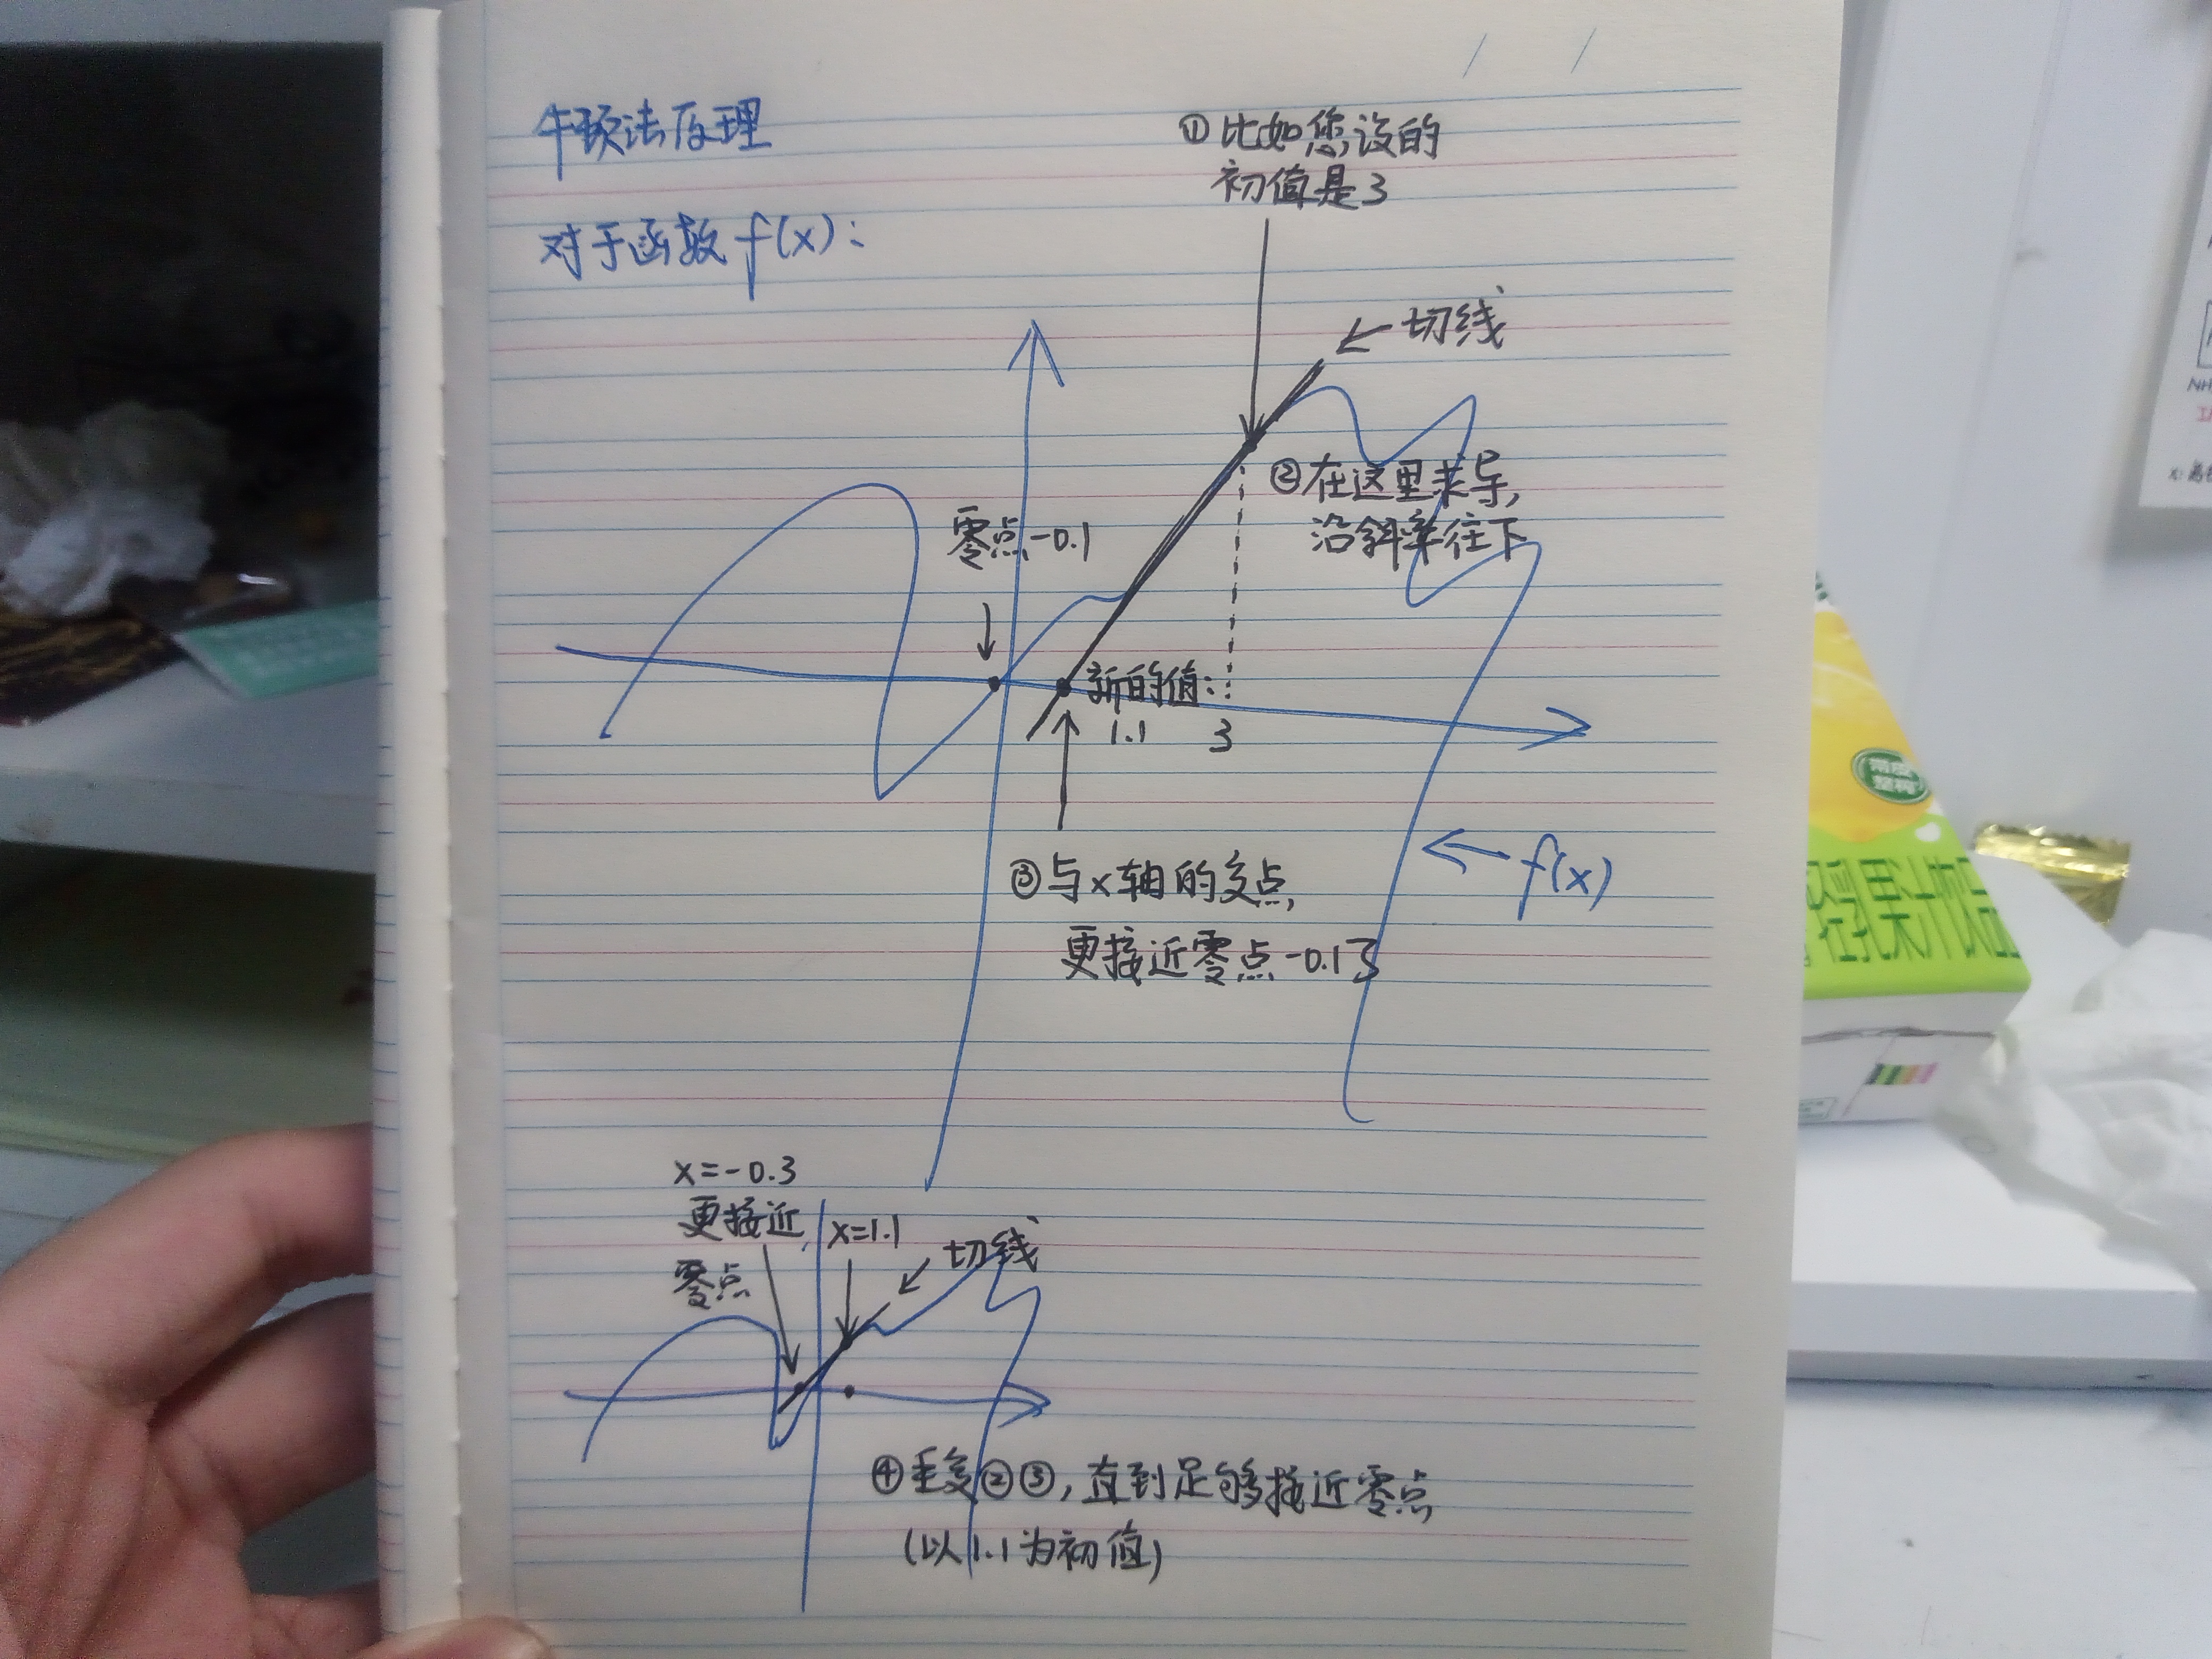 牛顿法原理
对于函数 f(x):
①比如您设的
初值是3
切线
②在这里求导,
沿斜率往下
零点-0.1
新的值:
1.1
3
③与x轴的交点,
更接近零点-0.1了
f(x)
x=-0.3
更接近
零点
x=1.1
切线
④重复②③,直到足够接近零点
(以1.1为初值)
带皮
整榨
轻乳果汁饮品
NH